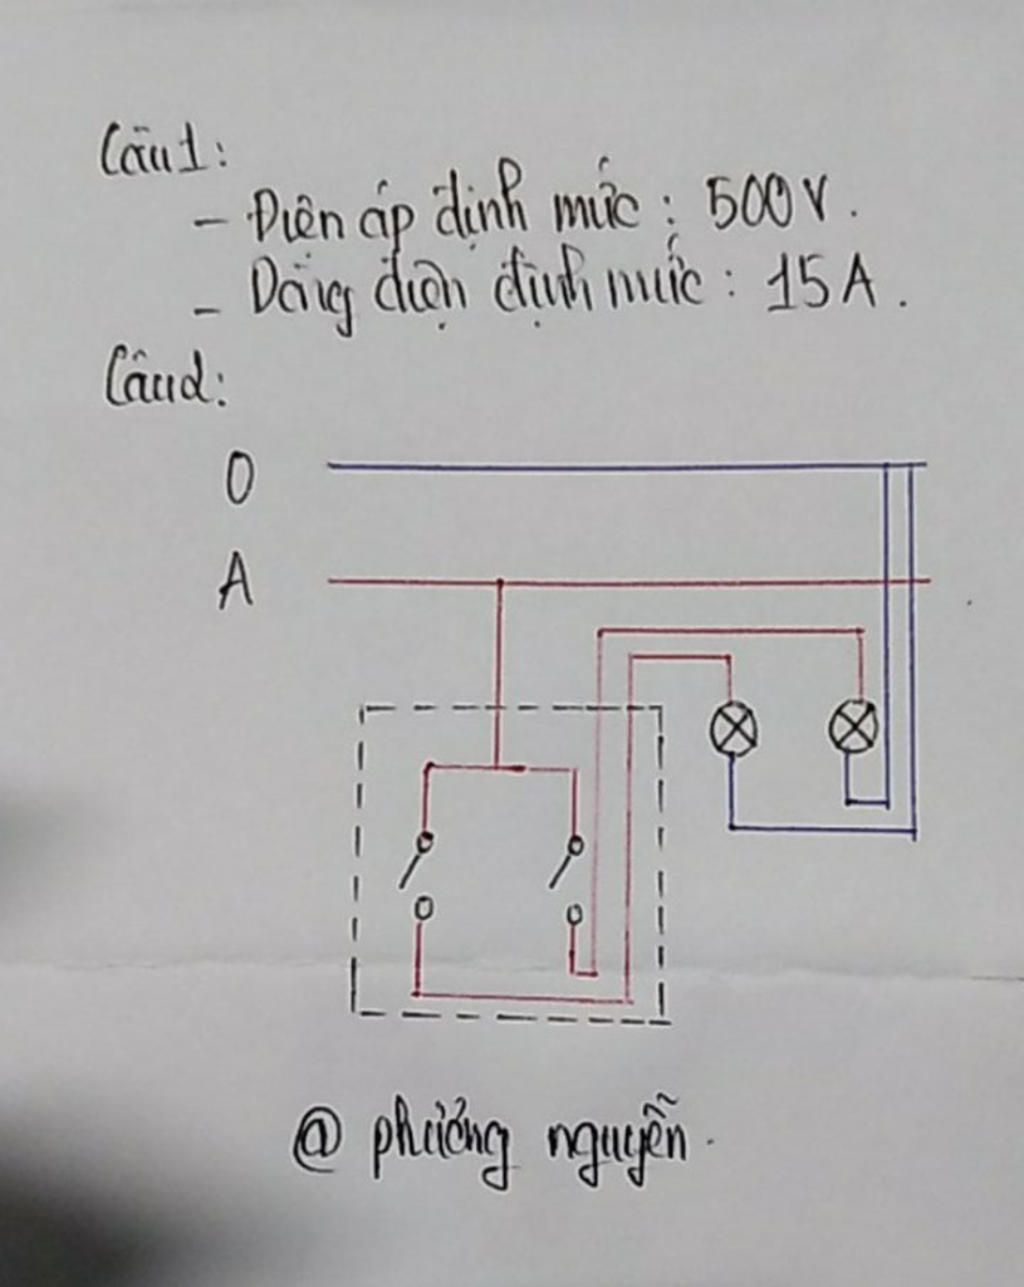 Câu 1:
- Điện áp định mức : 500V.
- Dòng điện định mức : 15A.
Câu 2:
O
A
@ phương nguyễn.